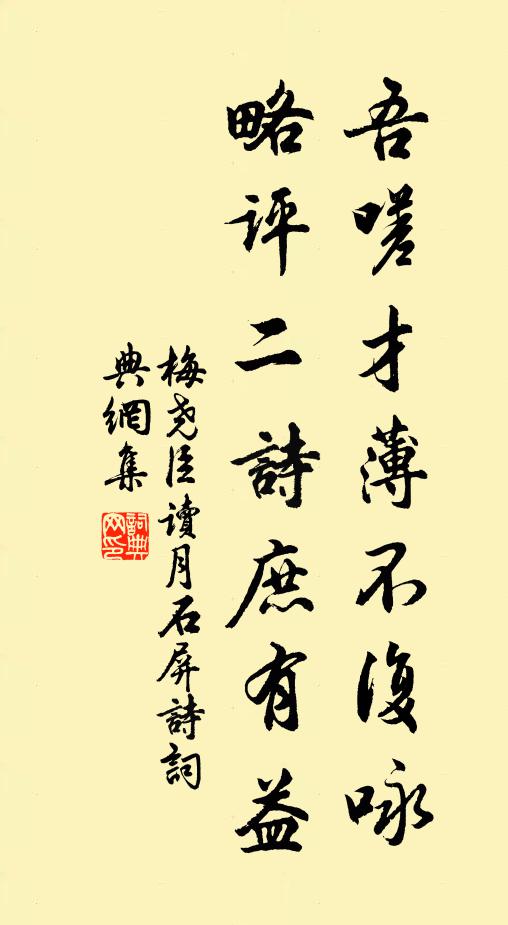 吾嗟才薄不復咏
略评二詩庶有益
梅尧臣讀月石屏詩詞
典網集
詞典
网印